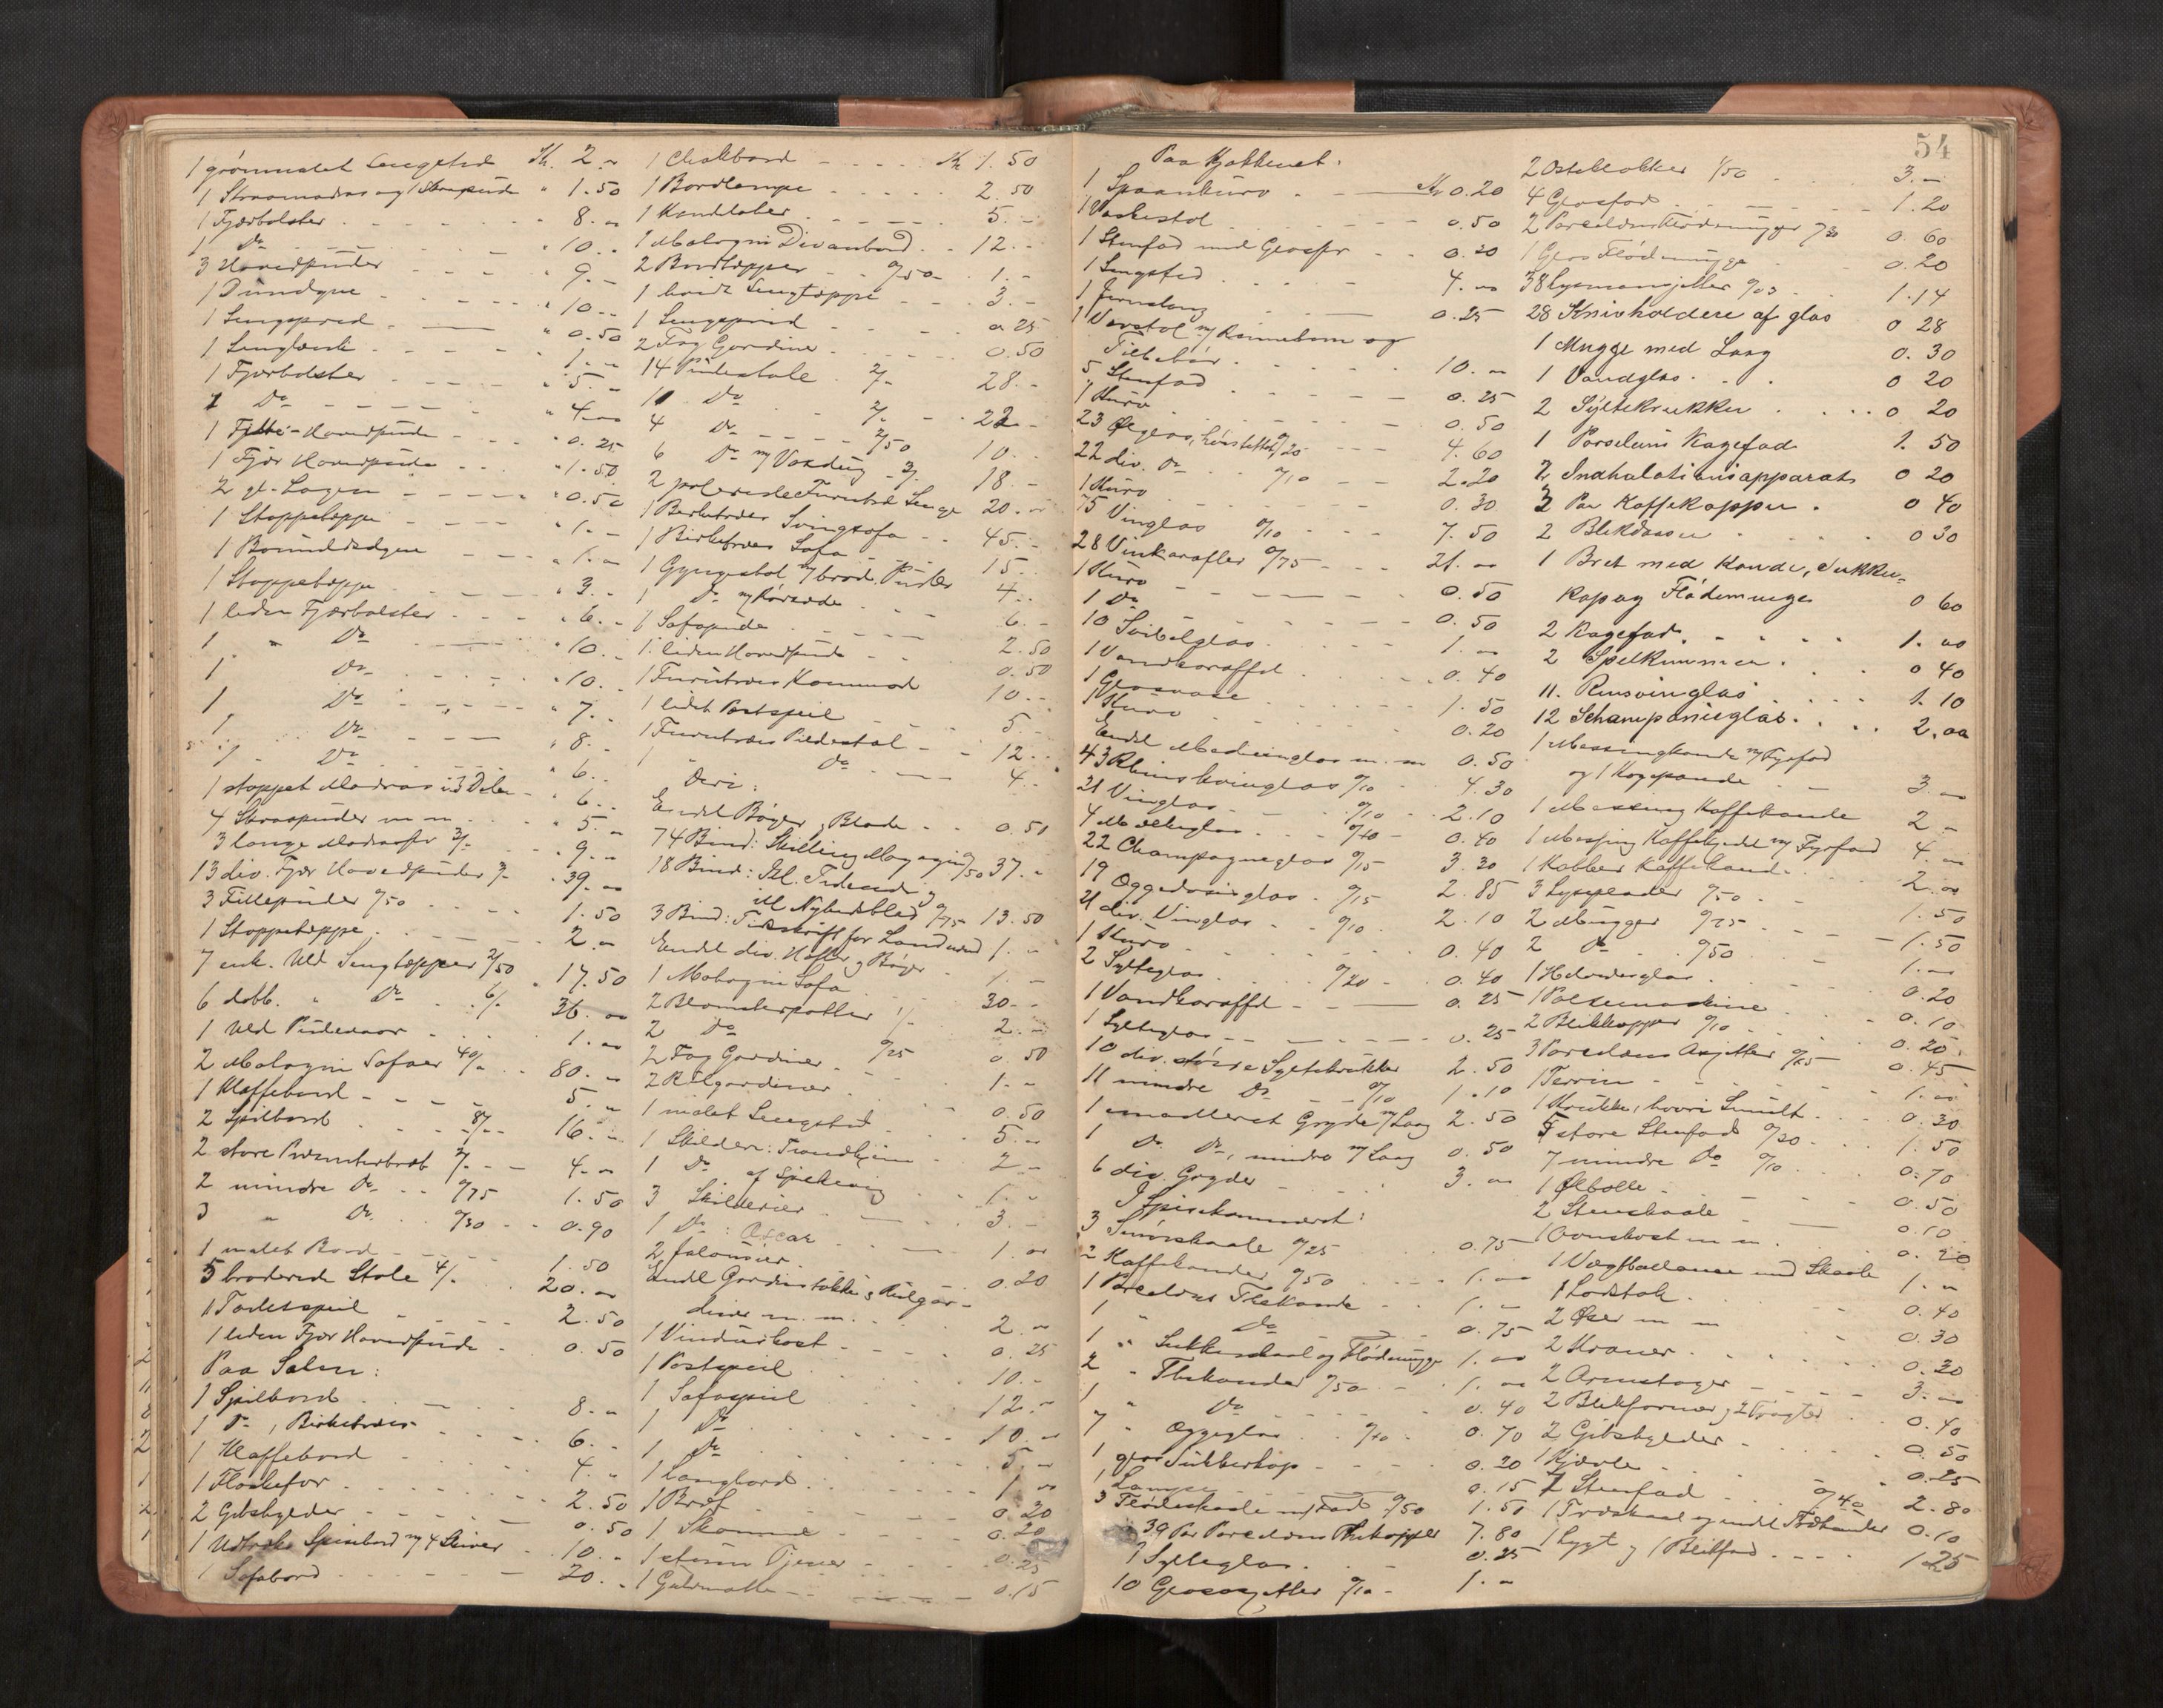 1 grønmalet Sengested Kr. 2.-
1 Straamadras og 1 Straapude " 1.50
1 Fjærbolster " 8.-
1 Do " 10.-
3 Hovedpuder " 9.-
1 Dundyne " 10.-
1 Sengspred " 0.50
1 Senglænde 1.-
1 Fjærbolster " 5.-
1 Do " 4.-
1 Fille-Hovedpude " 0.25
1 Fjær Hovedpude " 1.50
2 gl. Lagen " 0.50
1 Stoppetæppe " 1.-
1 Bomuldsdyne " 1.-
1 Stoppetæppe " 3.-
1 liden Fjærbolster " 6.-
1 " Do " 10.-
1 Do " 10.-
1 Do " 7.-
1 Do " 8.-
1 " Do " 6.-
1 stoppet Madras i 3 Dele " 6.-
4 Straapuder m m " 5.-
3 lange Madrasser 3/- " 9.-
13 div. Fjær Hovedpuder 3/- " 39.-
3 Fillepuder 0/50 1.50
1 Stoppetæppe 2.-
7 enk. Uld Sengtæpper 2/50 " 17.50
6 dobb. " Do 6/- 36.-
1 Uld Pudevaar 1.-
2 Mahogni Sofaer 40/- 80.-
1 Klaffebord 5.-
2 Spilbord 8/- 16.-
2 store Presenterbræt 2/- 4.-
2 mindre Do 0/75 1.50
3 " Do 0/30 0.90
1 malet Bord 1.50
5 broderede Stole 4/- 20.-
1 Toiletspeil 2.50
1 liden Fjær Hovedpude 0.50
Paa Salen:
1 Spilbord 8.-
1 Do, Birketræs 6.-
1 Klaffebord 4.-
1 Flaskefor 2.50
2 Gibshylder 0.50
1 Udtræks Spisebord m/ 4 Skiver 10.-
1 Sofabord 20.-
1 Chatbord Kr 1.50
1 Bordlampe 2.50
1 Kandelaber 5.-
1 Mahogni Divanbord 12.-
2 Bordtæpper 0/50 1.-
1 hvidt Sengtæppe 3.-
1 Sengspred 0.25
2 Fag Gardiner 0.50
14 Pindestole 2/- 28.-
11 Do 2/- 22.-
4 Do 2/50 10.-
6 Do m/ Voxdug 3/- 18.-
2 polerede Furutræs Senge 20.-
1 Birketræs Svingsofa 45.-
1 Birketræs Sofa 15.-
1 Gyngestol m/ brod. Puder 4.-
1 Do m/ Rørsæde 6.-
1 Sofapude 2.50
1 liden Hovedpude 0.50
1 Furutræs Kommode 10.-
1 lidet Postspeil 5.-
1 Furutræs Pidestal 12.-
1 " Do 4.-
Deri:
Endel Bøger, Blade 0.50
74 Bind: Skilling Magazin 0/50 37.-
18 Bind: Ill. Tidende og
ill Nyhedsblad 0/75 13.50
3 Bind: Tidsskrift for Landmænd 1.-
Endel div. Hefter og Bøger 1.-
1 Mahogni Sofa 30.-
2 Blomsterpotter 1/- 2.-
2 Do 0/25 0.50
2 Fag Gardiner 1.-
2 Rulgardiner 0.50
1 malet Sengested 5.-
1 Skilderi: Trondhjem 2.-
1 Do af 1.-
3 Skilderier 3.-
1 Do: Oscar 1.-
2 Jalousier 0.20
Endel Gardinstokke & Rulgar-
diner m. m. 2.-
1 Vinduskost 0.25
1 Postspeil 10.-
1 Sofaspeil 12.-
1 Do 10.-
1 Do 5.-
1 Langbord 1.-
1 Bræt 0.20
1 Skammel 0.20
1 stum Tjener 0.25
1 Gulvmatte 0.15
Paa Kjøkkenet:
1 Spaankurv Kr 0.20
1 Vaskestol 0.50
1 Stenfad med Glasspr 0.20
1 Sengsted 4.-
1 Jernstang 0.25
1 Vævstol m/ Rennebom og
Tilbehør 10.-
5 Stenfad 0.25
1 Kurv 0.50
23 Ølglas, høistilket 0/20 4.60
22 div. Do 0/10 2.20
1 Kurv 0.30
75 Vinglas 0/10 7.50
28 Vinkarafler 0/75 21.-
1 Kurv 0.50
1 Do 0.50
10 Svibelglas 1.-
1 Vandkaraffel 0.40
1 Glasvase 1.50
1 Kurv 0.20
Endel Medicinglas m. m 0.50
43 Rhinskvinglas 0/10 4.30
21 Vinglas 0/10 2.10
4 Madeiraglas 0/10 0.40
22 Champagneglas 0/15 3.30
19 Eggedosisglas 0/15 2.85
21 div. Vinglas 0/10 2.10
1 Kurv 0.40
2 Sylteglas 0/20 0.40
1 Vandkaraffel 0.25
1 Sylteglas 0.25
10 div. større Syltekrukker 2.50
11 mindre Do 0/10 1.10
1 emailleret Gryde m/ Laag 2.50
1 Do Do, mindre m/ Laag 0.50
6 div. Gryder 3.-
I Spisekammeret:
3 Smørskaale 0/25 0.75
2 Kaffekander 0/50 1.-
1 Porcelæns Thekande 1.-
1 " Do 0.75
1 " Sukkerskaal og Flødemugge 1.-
2 " Thekander 0/50 1.-
1 " Do 0.40
7 " Eggeglas 0/10 0.70
1 glas Sukkerkop 0.20
1 Lampe 0.15
3 Flødeskaale m/ Fad 0/50 1.50
39 Par Porcelæns Thekopper 7.80
1 Sylteglas 0.25
10 Glasasjetter 0/10 1.-
54
2 Osteklokker 1/50 3.-
4 Glasfad 1.20
2 Porcelæns Flødemugger 0/30 0.60
1 Glas Flødemugge 0.20
38 Lysmansjetter 0/03 1.14
28 Knivholdere af glas 0 28
1 Mugge med Laag 0.30
1 Vandglas 0 20
2 Syltekrukker 0 20
1 Porselæns Kagefad 1.50
2 Indhalationsapparats 0 20
2 Par Kaffekopper 0 40
2 Blikdaaser 0 30
1 Bret med Kande, Sukker-
kop og Flødemugge 0 60
2 Kagefad 1.00
2 Spelkummer 0 40
11. Rinsvinglas 1.10
12 Schampanieglas 2.00
1 Messingkande m/ Fyrfad
og 1 Kogepande 3.-
1 Messing Kaffekande 2.-
1 Messing Kaffekjedel m/ Fyrfad 4.-
1 Kobber Kaffekande 2.-
3 Lysplader 0/50 1.50
2 Mugger 0/75 1.50
2 Do 0/50 1.-
1 0.20
1 Pølsemaskine 0.10
2 Blikkopper 0/10 0.20
3 Porcelæns Asjetter 0/15 0.45
1 Terrin 1.-
1 Krukke, hvori Smult 0.30
5 store Stenfad 0/30 1.50
7 mindre Do 0/10 0.70
1 Ølbolle 0.50
2 Stenskaale 0.10
1 Ovnskost m m 0.20
1 Vægtballance med Skaale 1.-
1 0.40
2 Øser m m 0.30
2 Kraner 0.30
2 Armstager 3.-
2 Blikformer & 2 Tragter 0.40
2 Gibshylder 0.50
1 Kjævle 0.25
7 Stenfad 0/40 2.80
1 Træskaal og endel Træ 0.10
1 Lygt & 1 Blikfad 1.25